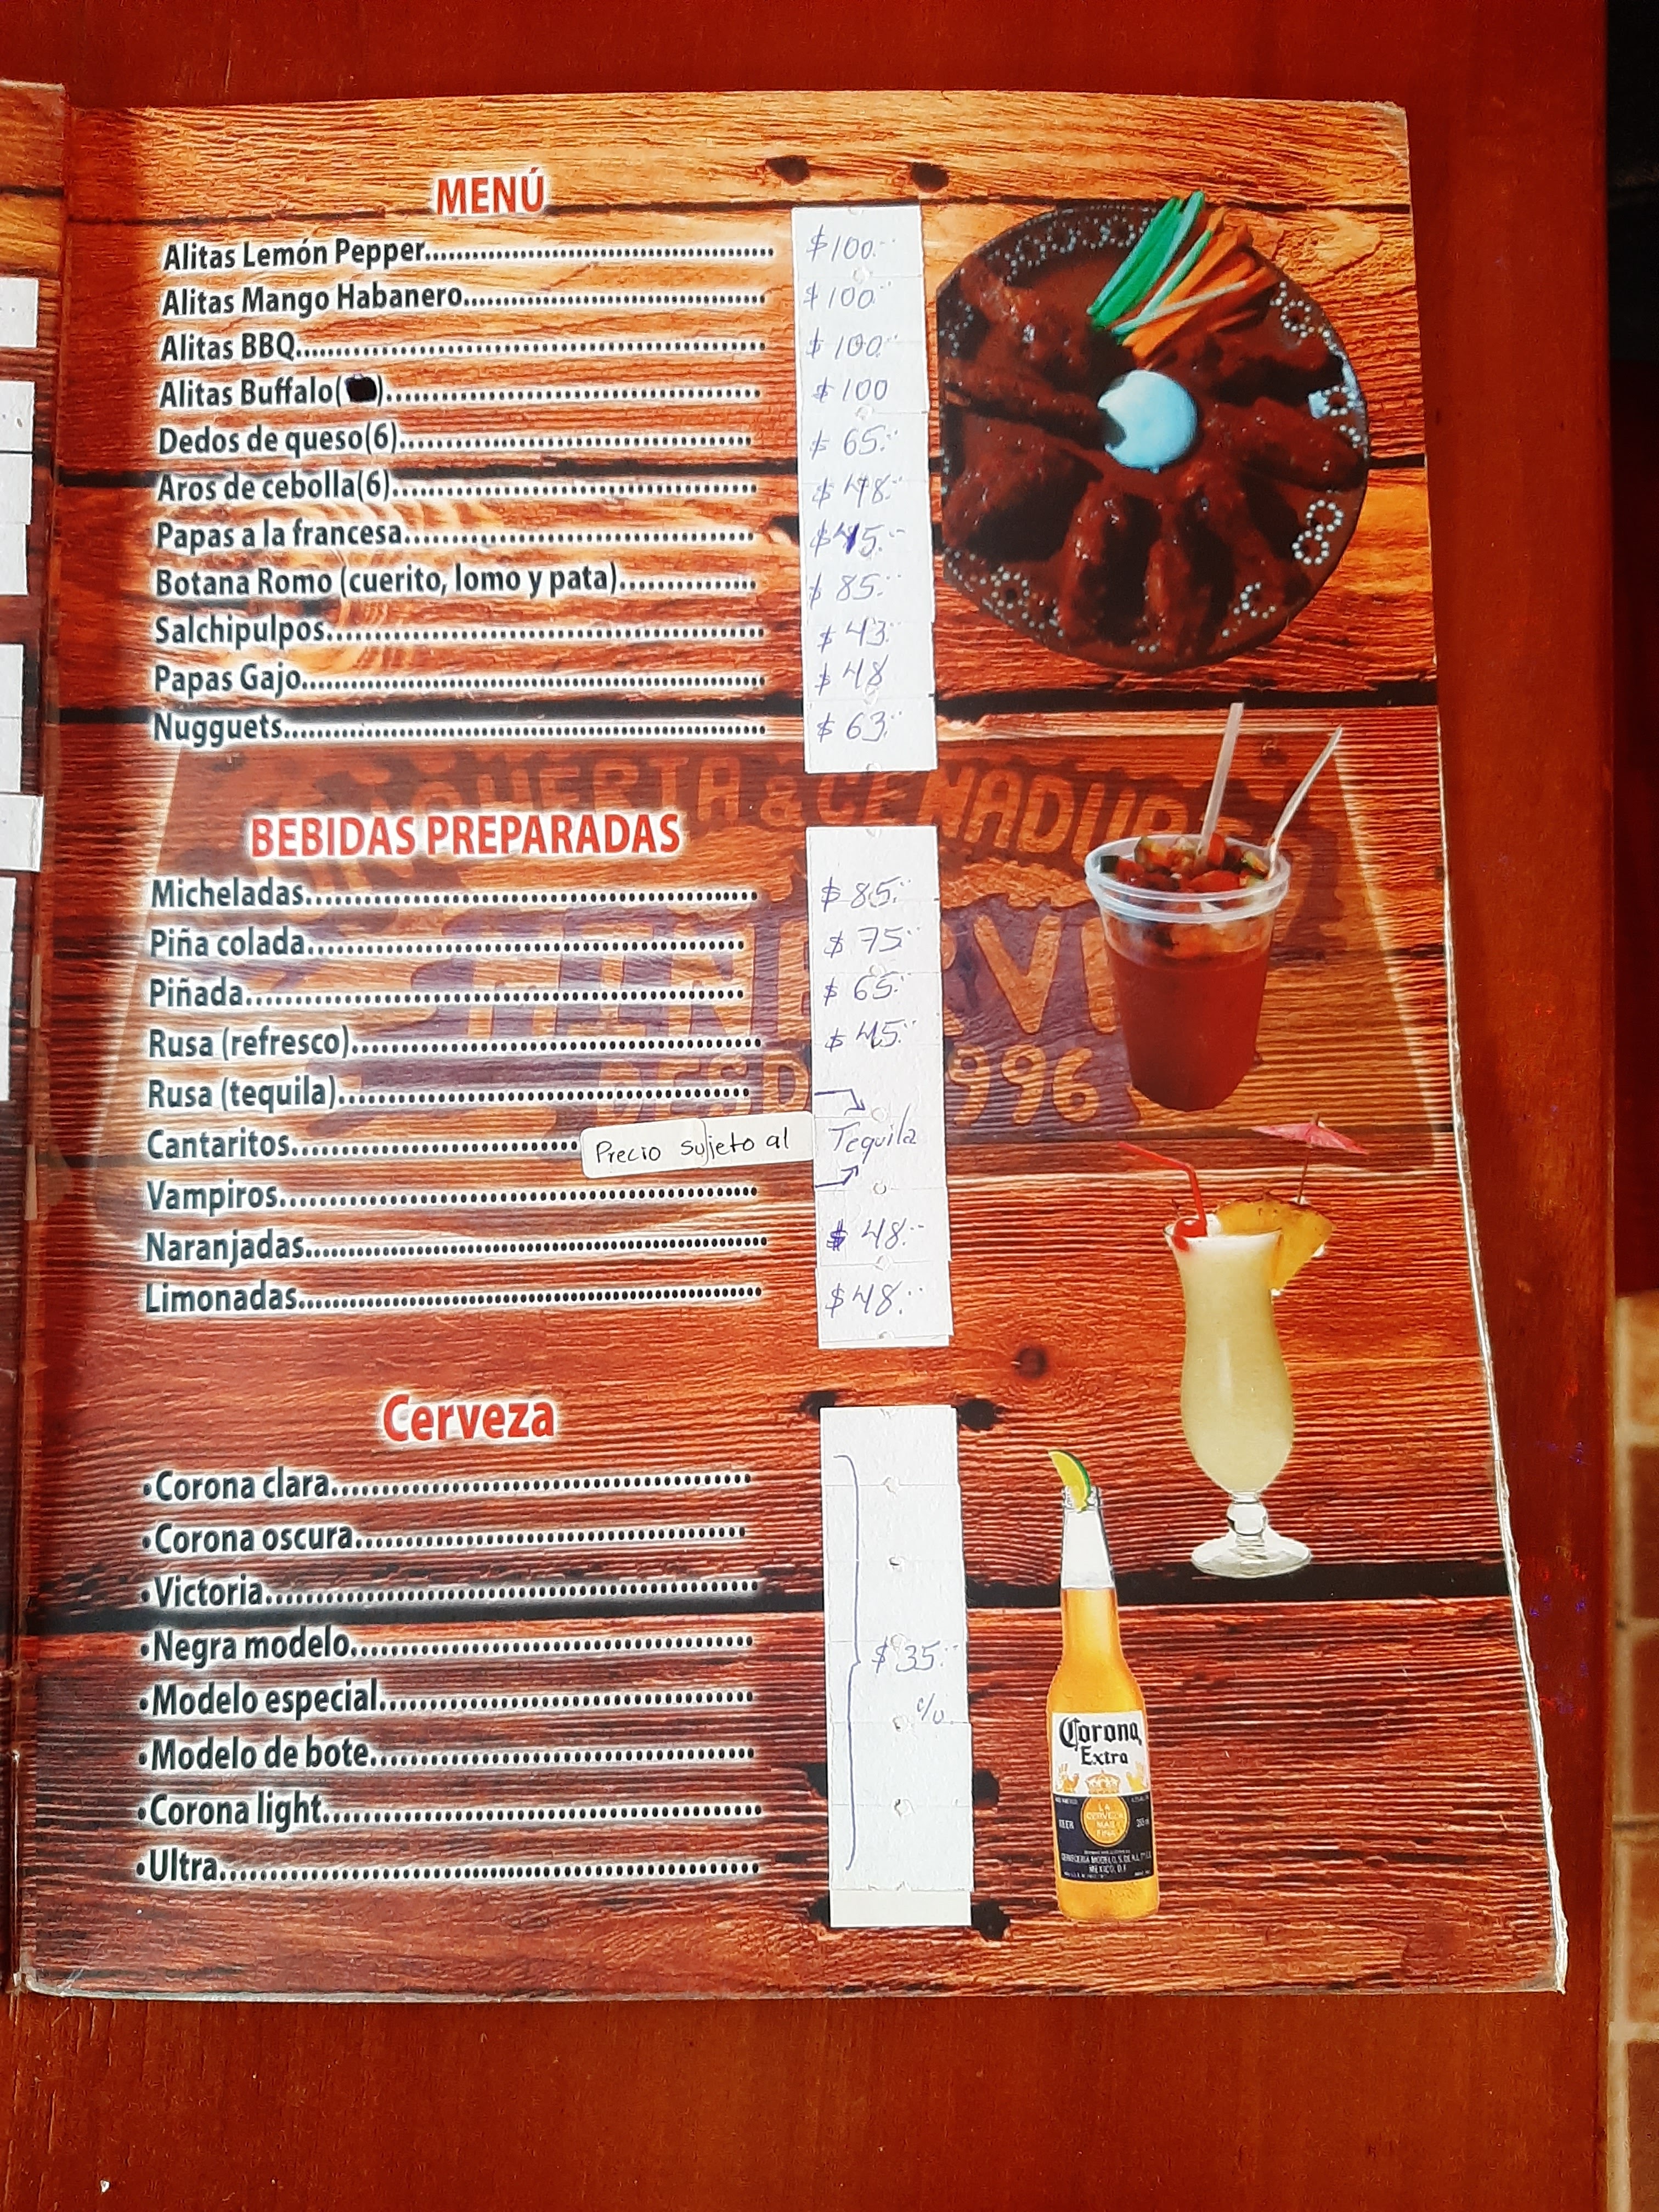 MENÚ
Alitas Lemón Pepper $100.--
Alitas Mango Habanero $100.--
Alitas BBQ $100.--
Alitas Buffalo( ) $100
Dedos de queso(6) $65.--
Aros de cebolla(6) $48.--
Papas a la francesa $45.--
Botana Romo (cuerito, lomo y pata) $85.--
Salchipulpos $43.--
Papas Gajo $48
Nugguets $63.--
BEBIDAS PREPARADAS
Micheladas $85.--
Piña colada $75.--
Piñada $65.--
Rusa (refresco) $45.--
Rusa (tequila)
Cantaritos Precio sujeto al Tequila
Vampiros
Naranjadas $48.--
Limonadas $48.--
Cerveza
•Corona clara
•Corona oscura
•Victoria
•Negra modelo $35.--
•Modelo especial c/u.
•Modelo de bote
•Corona light
•Ultra
Corona
Extra
LA
CERVEZA
MAS
FINA